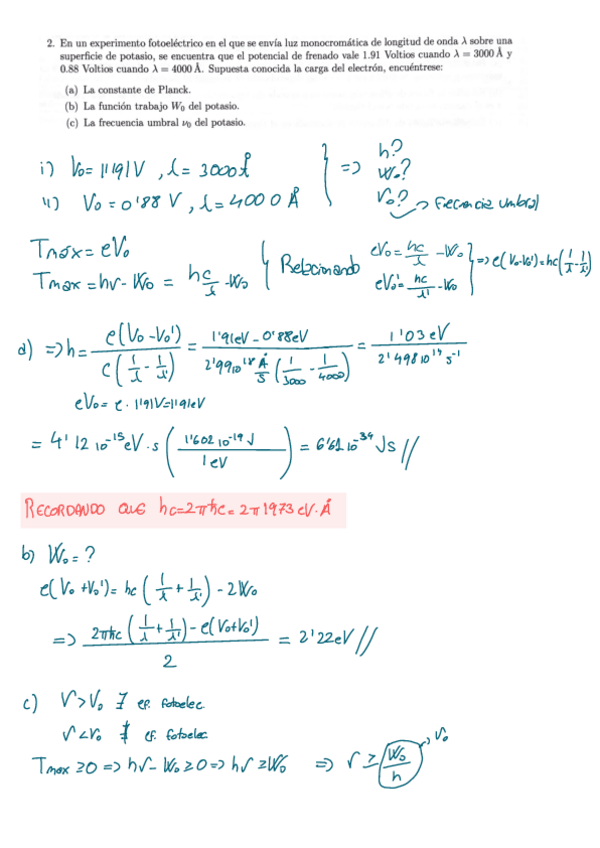 2. En un experimento fotoeléctrico en el que se envía luz monocromática de longitud de onda λ sobre una
superficie de potasio, se encuentra que el potencial de frenado vale 1.91 Voltios cuando λ = 3000 Å y
0.88 Voltios cuando λ = 4000 Å. Supuesta conocida la carga del electrón, encuéntrese:
(a) La constante de Planck.
(b) La función trabajo W₀ del potasio.
(c) La frecuencia umbral ν₀ del potasio.
i) V₀ = 1'191 V , λ = 3000 Å
ii) V₀ = 0'88 V , λ = 4000 Å
=> h?
W₀?
ν₀? → Frecuencia umbral
Tmáx = eV₀
Tmax = hν - W₀ = hc/λ - W₀
Relacionando
eV₀ = hc/λ - W₀
eV₀' = hc/λ' - W₀
=> e(V₀-V₀') = hc(1/λ - 1/λ')
a) => h = e(V₀-V₀') / c(1/λ - 1/λ') = 1'91eV - 0'88eV / 2'99 10¹⁸ Å/s (1/3000 - 1/4000) = 1'03 eV / 2'498 10¹⁴ s⁻¹
eV₀ = e · 1'91V = 1'91eV
= 4'12 10⁻¹⁵ eV·s (1'602 10⁻¹⁹ J / 1 eV) = 6'61 10⁻³⁴ Js //
RECORDANDO QUE hc = 2πħc = 2π 1973 eV·Å
b) W₀ = ?
e(V₀ + V₀') = hc (1/λ + 1/λ') - 2W₀
=> 2πħc (1/λ + 1/λ') - e(V₀+V₀') / 2 = 2'22eV //
c) ν > ν₀ ∃ ef. fotoelec
ν < ν₀ ∄ ef. fotoelec
Tmax ≥ 0 => hν - W₀ ≥ 0 => hν ≥ W₀ => ν ≥ W₀/h → ν₀